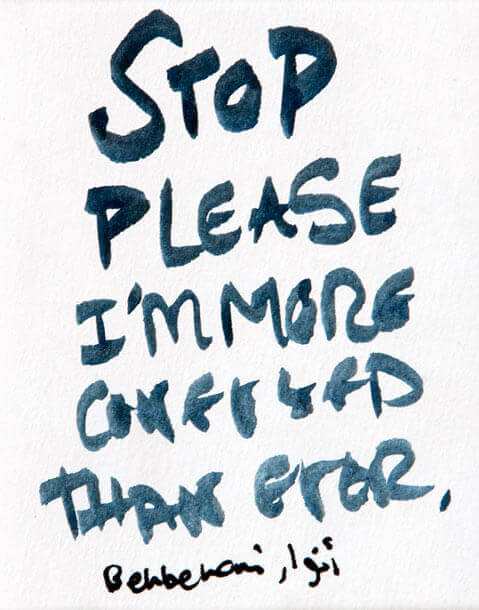 STOP
PLEASE
I'M MORE
CONFUSED
THAN EVER.
Behbehani أنوار